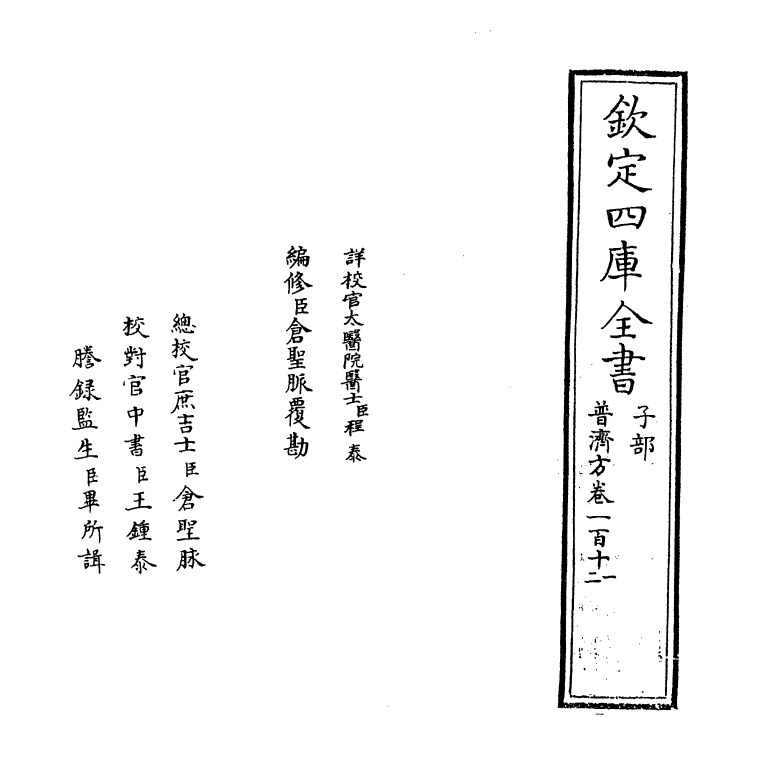 欽定四庫全書
子部
普濟方卷一百十一
二
詳校官太醫院醫士臣程泰
編修臣倉聖脈覆勘
總校官庶吉士臣倉聖脉
校對官中書臣王鍾泰
謄錄監生臣畢所諿